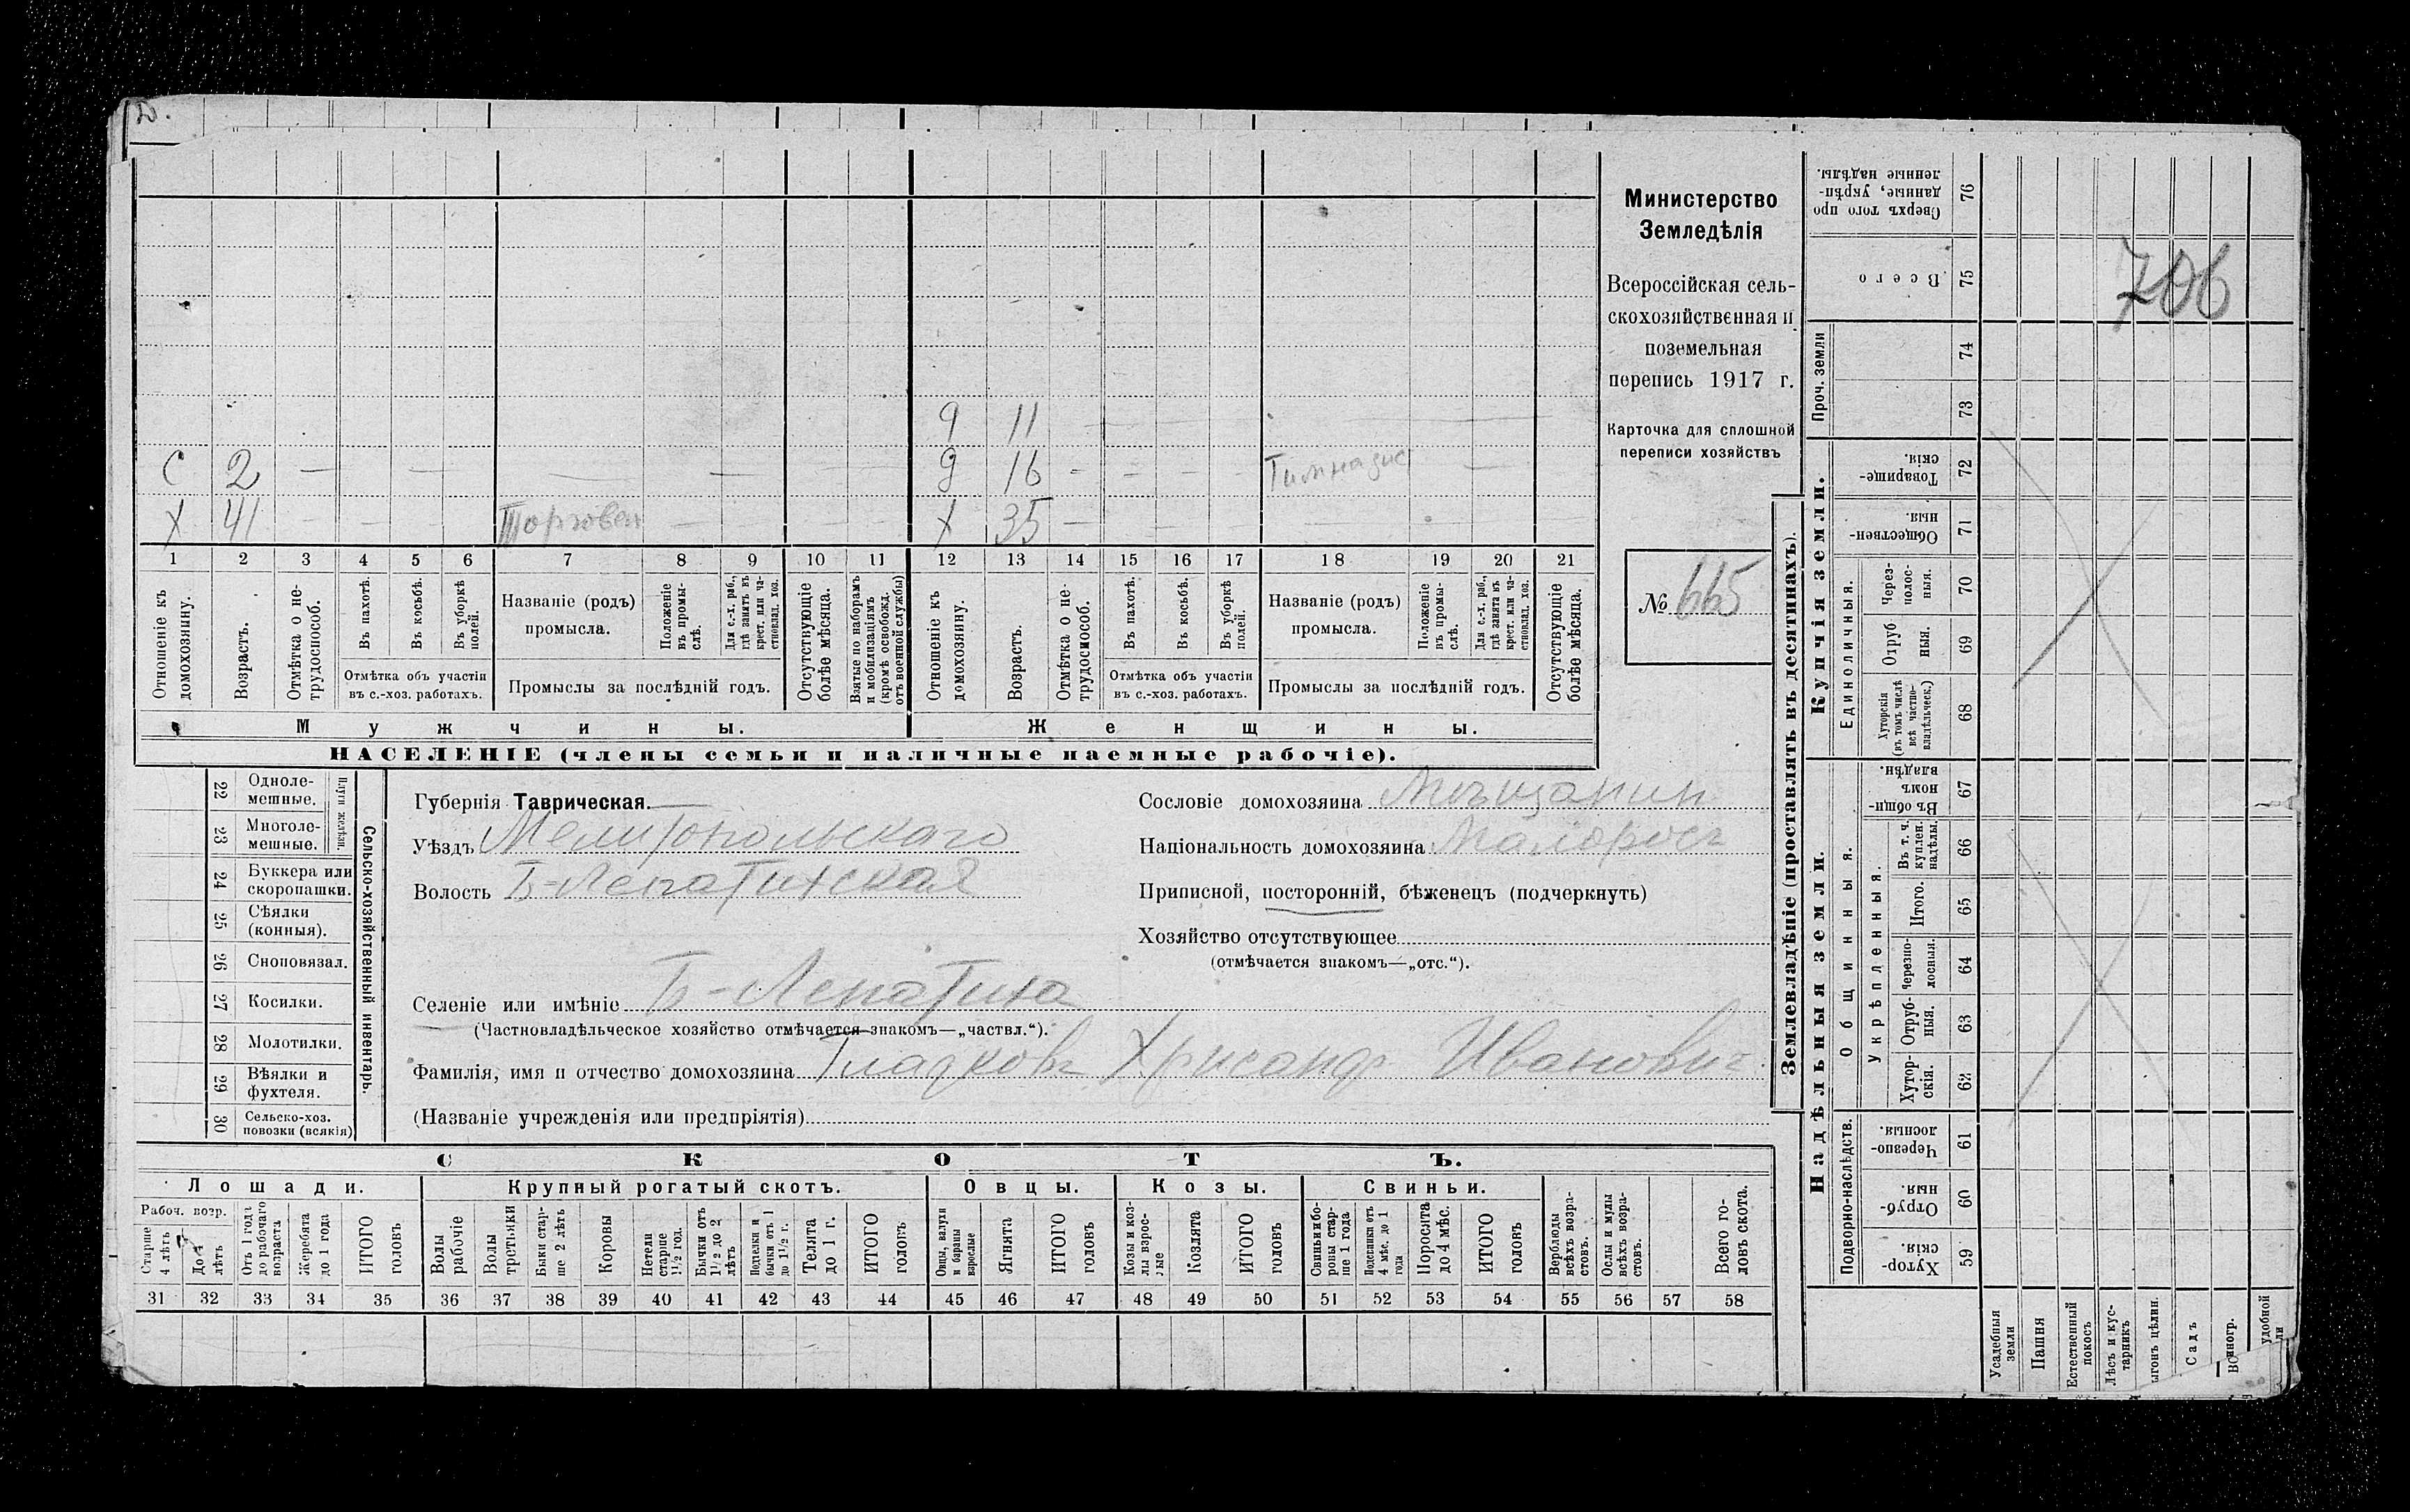 Министерство
Земледѣлія
Всероссійская сель-
скохозяйственная и
поземельная
перепись 1917 г.
Карточка для сплошной
переписи хозяйствъ
№ 665
706
9 11
С 2 — — — — 9 16 - - - Гимназис —
Х 41 — — Торговец — — Х 35 — —
1 2 3 4 5 6 7 8 9 10 11 12 13 14 15 16 17 18 19 20 21
Отношеніе къ домохозяину.
Возрастъ.
Отмѣтка о не-трудоспособ.
Въ пахотѣ.
Въ косьбѣ.
Въ уборкѣ полей.
Отмѣтка объ участіи
въ с.-хоз. работахъ.
Названіе (родъ)
промысла.
Положеніе въ промы-слѣ.
Для с.-х. раб., гдѣ занятъ въ крест. или ча-стновлад. хоз.
Промыслы за послѣдній годъ.
Отсутствующіе болѣе мѣсяца.
Взятые по наборамъ и мобилизаціямъ (кромѣ освобожд. отъ военной службы)
Отношеніе къ домохозяину.
Возрастъ.
Отмѣтка о не-трудоспособ.
Въ пахотѣ.
Въ косьбѣ.
Въ уборкѣ полей.
Отмѣтка объ участіи
въ с.-хоз. работахъ.
Названіе (родъ)
промысла.
Положеніе въ промы-слѣ.
Для с.-х. раб., гдѣ занята въ крест. или ча-стновлад. хоз.
Промыслы за послѣдній годъ.
Отсутствующіе болѣе мѣсяца.
Мужчины. Женщины.
НАСЕЛЕНІЕ (члены семьи и наличные наемные рабочіе).
22 Однолемешные.
23 Многолемешные.
Плуги желѣзн.
24 Буккера или скоропашки.
25 Сѣялки (конныя).
26 Сноповязал.
27 Косилки.
28 Молотилки.
29 Вѣялки и фухтеля.
30 Сельско-хоз. повозки (всякія)
Сельско-хозяйственный инвентарь.
Губернія Таврическая.
Уѣздъ Мелитопольскаго
Волость Б-Лепатихская
Селеніе или имѣніе Б-Лепатиха
(Частновладѣльческое хозяйство отмѣчается знакомъ—„частвл.“).
Фамилія, имя и отчество домохозяина Гладковъ Хрисанф Иванович
(Названіе учрежденія или предпріятія)
Сословіе домохозяина Мѣщанин
Національность домохозяина Малоросъ
Приписной, посторонній, бѣженецъ (подчеркнуть)
Хозяйство отсутствующее
(отмѣчается знакомъ—„отс.“).
СКОТЪ.
Лошади. Крупный рогатый скотъ. Овцы. Козы. Свиньи.
Рабоч. возр.
Старше 4 лѣтъ
До 4 лѣтъ
Отъ 1 года до рабочаго возраста
Жеребята до 1 года
ИТОГО головъ
Волы рабочіе
Волы третьяки
Быки стар-ше 2 лѣтъ
Коровы
Нетели старше 1½ год.
Бычки отъ 1½ до 2 лѣтъ
Подтелки и бычки отъ 1 до 1½ г.
Телята до 1 г.
ИТОГО головъ
Овцы, валухи и бараны взрослые
Ягнята
ИТОГО головъ
Козы и коз-лы взрос-лые
Козлята
ИТОГО головъ
Свиньи и бо-ровы стар-ше 1 года
Подсвинки отъ 4 мѣс. до 1 года
Поросята до 4 мѣс.
ИТОГО головъ
Верблюды всѣхъ возра-стовъ.
Ослы и мулы всѣхъ возра-стовъ.
Всего го-ловъ скота.
31 32 33 34 35 36 37 38 39 40 41 42 43 44 45 46 47 48 49 50 51 52 53 54 55 56 57 58
Землевладѣніе (проставлять въ десятинахъ).
Купчія земли.
Надѣльныя земли.
76 Сверхъ того про-данные, укрѣп-ленные надѣлы.
75 Всего
Проч. земли
74
73
72 Товарище-скія.
71 Обществен-ныя.
Единоличныя.
70 Через-полос-ныя.
69 Отруб-ныя.
68 Хуторскія (въ томъ числѣ всѣ частно-владѣльческ.)
67 Въ общин-номъ владѣн.
Общинныя.
Укрѣпленныя.
66 Въ т. ч. куплен. надѣлы.
65 Итого.
64 Черезпо-лосныя.
63 Отруб-ныя.
62 Хутор-скія.
Подворно-наслѣдств.
61 Черезпо-лосныя.
60 Отруб-ныя.
59 Хутор-скія.
Усадебныя земли
Пашня
Естественный покосъ
Лѣсъ и кус-тарникъ
ыгонъ цѣлин.
Садъ
иногр.
удобной
ли